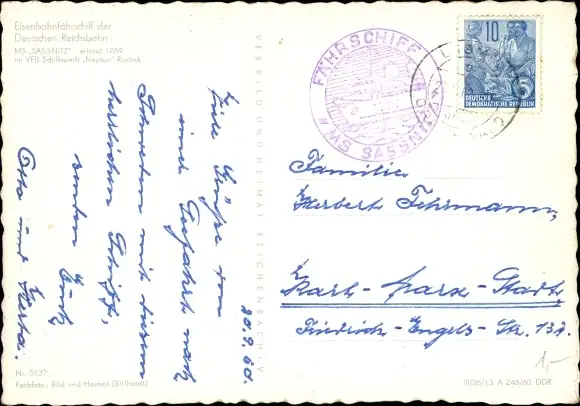 Eisenbahnfährschiff der
Deutschen Reichsbahn
MS „SASSNITZ" - erbaut 1959
im VEB Schiffswerft „Neptun" Rostock
VERBILD UND HEIMAT REICHENBACH I. V.
20.9.60.
Viele Grüße von
einer Seefahrt nach
Schweden mit diesem
herrlichen Schiff,
senden Euch
Otto und Herta.
FÄHRSCHIFF
"MS SASSNITZ"
10
5
DEUTSCHE
DEMOKRATISCHE REPUBLIK
Familie
Herbert Fehrmann,
Karl-Marx-Stadt,
Friedrich-Engels-Str. 137.
1,-
Nr. 5137
Farbfoto: Bild und Heimat (Billhardt)
III/26/13 A 246/60 DDR